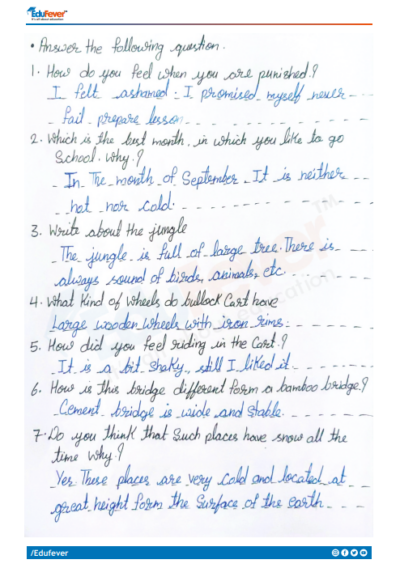 EduFever
• Answer the following question.
1. How do you feel when you are punished?
I felt ashamed. I promised myself never
fail prepare lesson
2. Which is the best month in which you like to go
School. Why?
In The month of September. It is neither
hot nor cold.
3. Write about the jungle
The jungle is full of large tree. There is
always sound of birds, animals, etc.
4. What Kind of Wheels do bullock Cart have
Large wooden wheels with iron rims.
5. How did you feel riding in the Cart?
It is a bit shaky, still I liked it
6. How is this bridge different form a bamboo bridge?
Cement bridge is wide and Stable.
7. Do you think that Such places have snow all the
time why?
Yes These places are very cold and located at
great height form the Surface of the earth
/Edufever